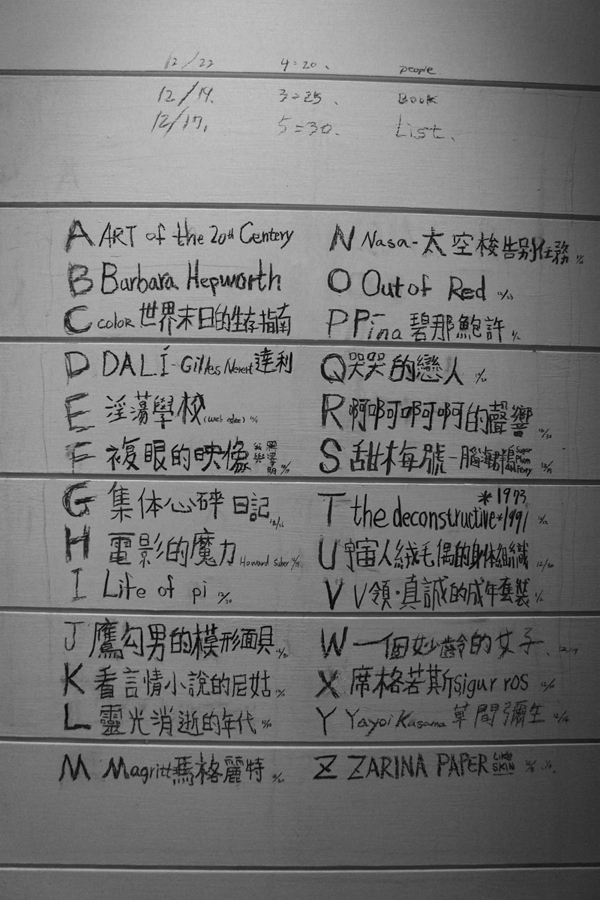 12/22 4=20、 people
12/19. 3=25、 BOOK
12/17, 5=30. List、
A ART of the 20th Century
B Barbara Hepworth
C color 世界末日的生存指南
D DALÍ- Gilles Néret 達利
E 淫蕩學校
F 複眼的映像
G 集体心碎日記
H 電影的魔力 Howard Suber
I Life of pi
J 鷹勾男的模形面具
K 看言情小說的尼姑
L 靈光消逝的年代
M Magritt 馬格麗特
N Nasa-太空梭告别任務
O Out of Red
P Pina 碧那鮑許
Q 哭哭的戀人
R 啊啊啊啊的聲響
S 甜梅號-腦海群鶴 Sugar Plum Ferry
T the deconstructive *1973 *1991
U 宇宙人絨毛偶的身体組織
V V領·真誠的成年套裝
W 一個妙齡的女子
X 席格若斯 sigur ros
Y Yayoi Kasama 草間彌生
Z ZARINA PAPER LIKE SKIN